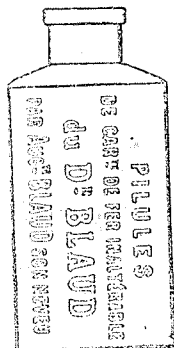 PILULES
DE CARB. DE FER INALTÉRABLE
du DR BLAUD
PAR AUGTE BLAUD SON NEVEU